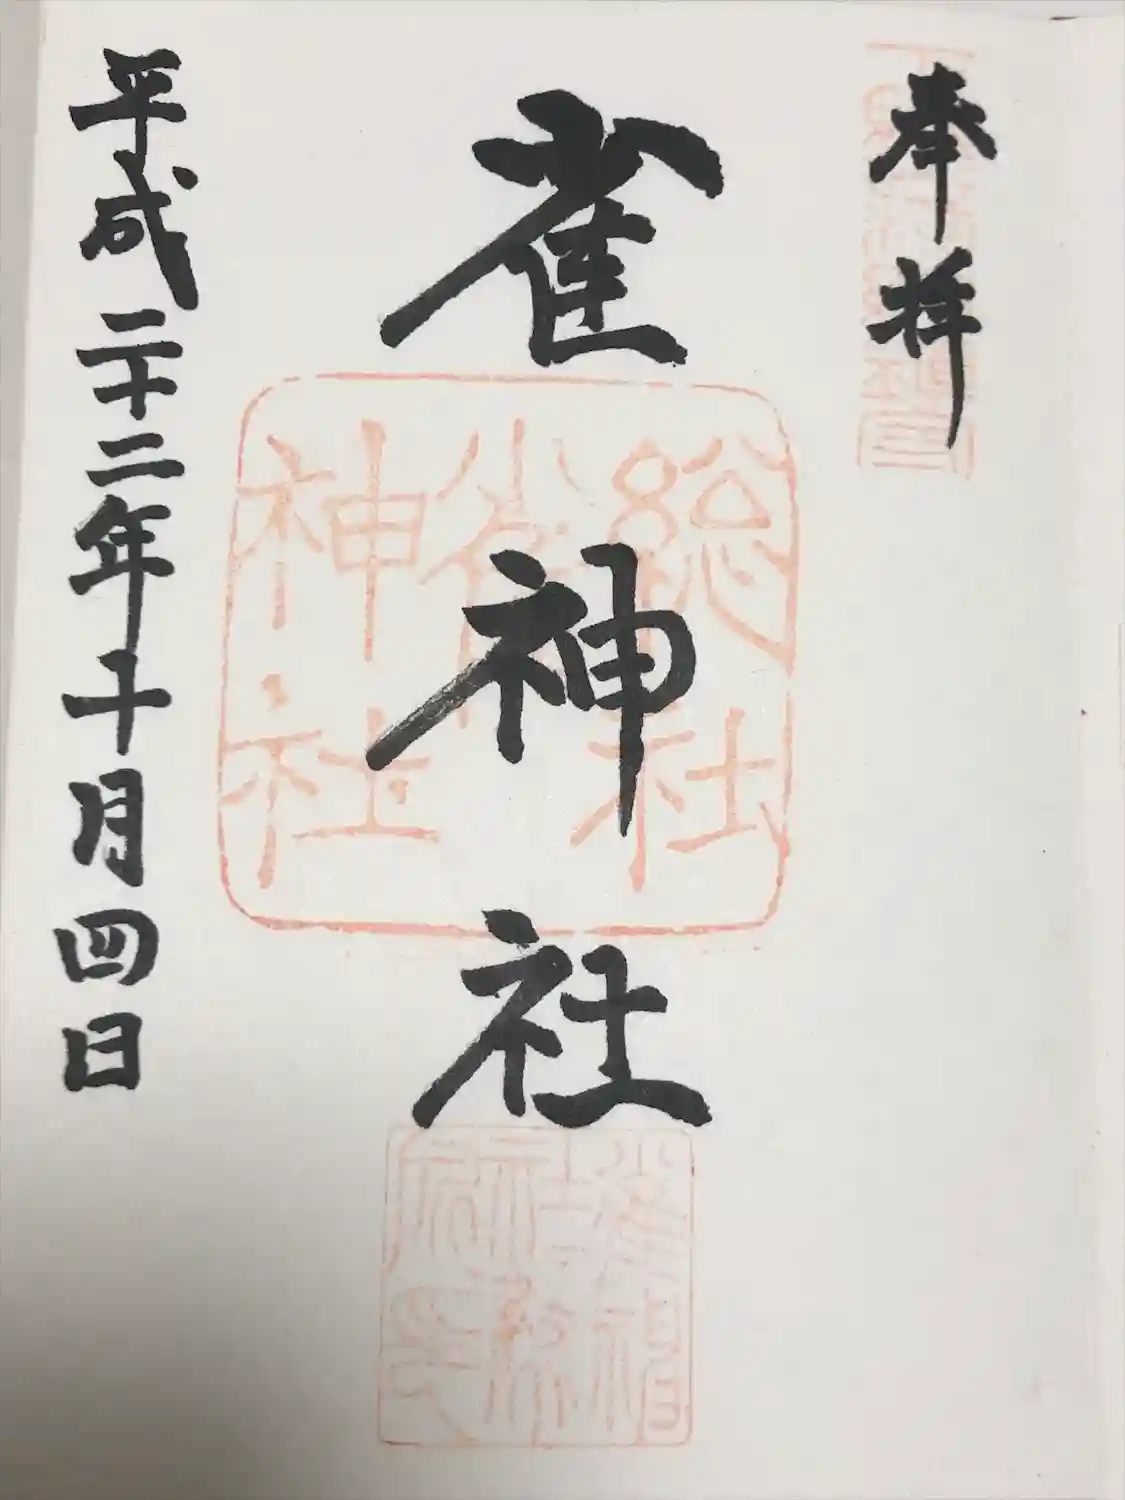 奉拝
雀神社
総社
雀神社
平成二十二年十月四日